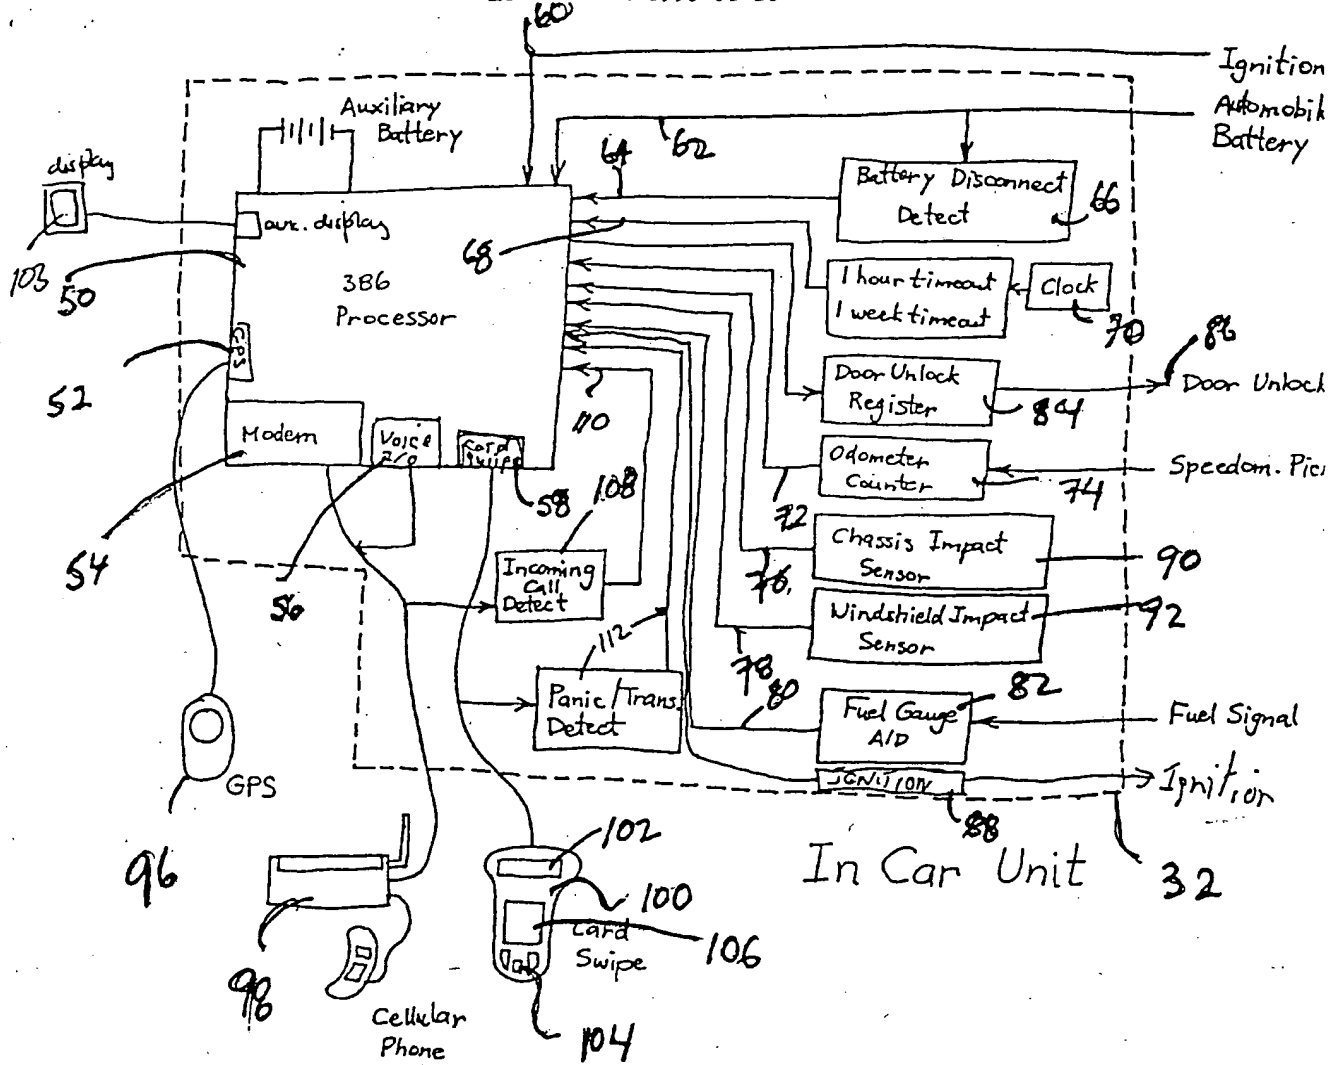 60
Ignition
Automobil
Battery
Auxiliary
Battery
64
62
display
Battery Disconnect
Detect
66
aux. display
103
50
68
386
Processor
1 hour timeout
1 week timeout
Clock
70
86
GPS
52
Door Unlock
Register
84
Door Unlock
110
Modem
Voice
I/O
Card
Swipe
58
108
Odometer
Counter
74
Speedom. Pic
72
54
56
Incoming
Call
Detect
Chassis Impact
Sensor
90
76
Windshield Impact
Sensor
92
112
78
80
Panic/Trans.
Detect
Fuel Gauge
A/D
82
Fuel Signal
IGNITION
Ignition
88
GPS
96
102
In Car Unit
32
100
Card
Swipe
106
98
Cellular
Phone
104